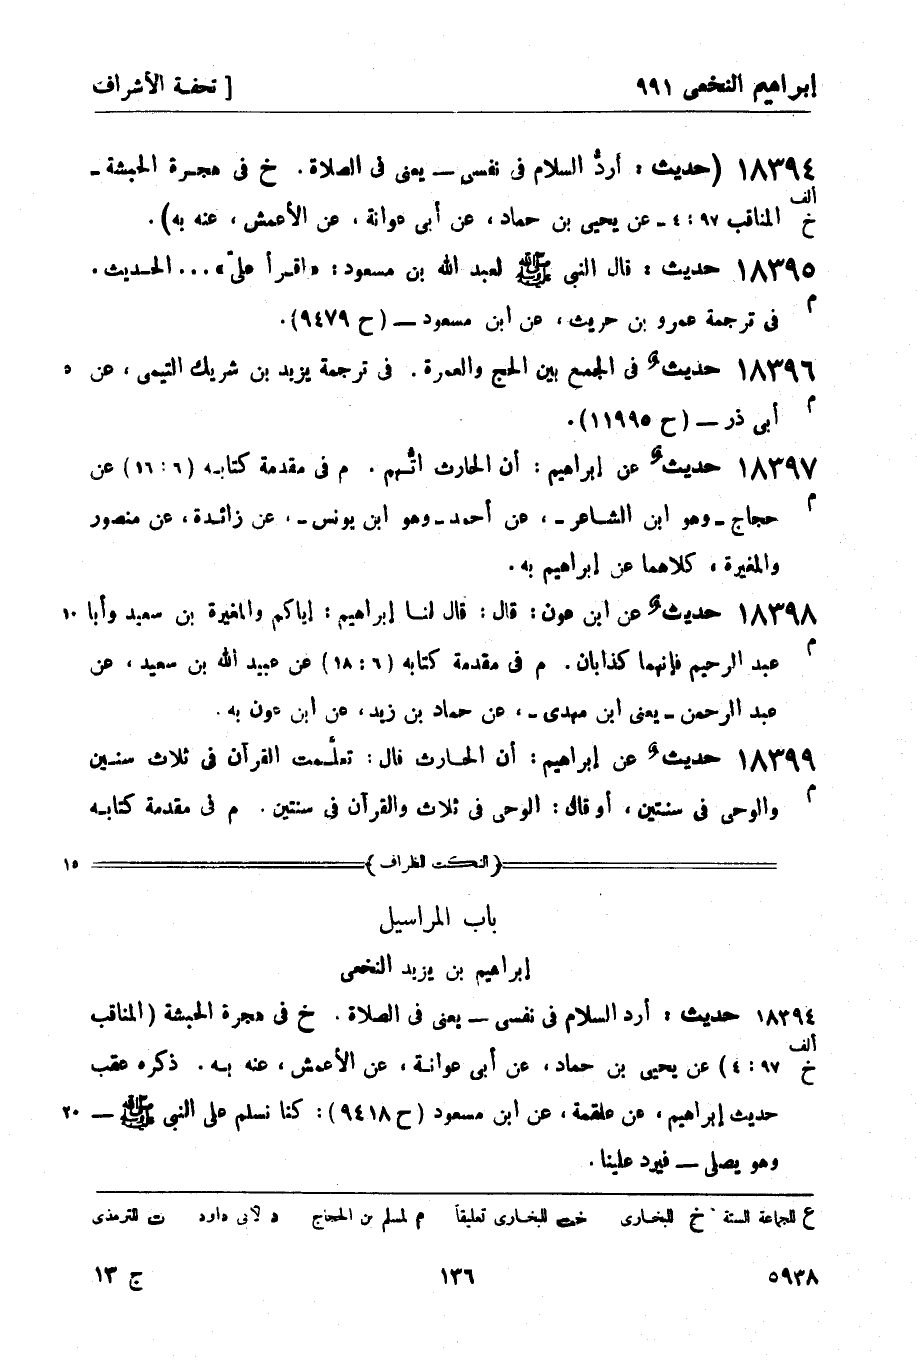 إبراهيم النخعى ٩٩١ [ تحفة الأشراف
١٨٣٩٤ (حديث : أردُّ السلام فى نفسى — يعنى فى الصلاة . خ فى هجرة الحبشة ـ
ألف
خ المناقب ٩٧ : ٤ ـ عن يحيى بن حماد ، عن أبى عوانة ، عن الأعمش ، عنه به) .
١٨٣٩٥ حديث : قال النبى ﷺ لعبد الله بن مسعود : «اقرأ علىّ» ... الحديث .
م فى ترجمة عمرو بن حريث ، عن ابن مسعود — (ح ٩٤٧٩) .
١٨٣٩٦ حديث فى الجمع بين الحج والعمرة . فى ترجمة يزيد بن شريك التيمى ، عن ٥
م أبى ذر — (ح ١١٩٩٥) .
١٨٣٩٧ حديث عن إبراهيم : أن الحارث اتُّهم . م فى مقدمة كتابه (٦ : ١٦) عن
م حجاج ـ وهو ابن الشاعر ـ ، عن أحمد ـ وهو ابن يونس ـ ، عن زائدة ، عن منصور
والمغيرة ، كلاهما عن إبراهيم به .
١٨٣٩٨ حديث عن ابن عون : قال : قال لنا إبراهيم : إياكم والمغيرة بن سعيد وأبا ١٠
م عبد الرحيم فإنهما كذابان . م فى مقدمة كتابه (٦ : ١٨) عن عبيد الله بن سعيد ، عن
عبد الرحمن ـ يعنى ابن مهدى ـ ، عن حماد بن زيد ، عن ابن عون به .
١٨٣٩٩ حديث عن إبراهيم : أن الحارث قال : تعلَّمت القرآن فى ثلاث سنين
م والوحى فى سنتين ، أو قال : الوحى فى ثلاث والقرآن فى سنتين . م فى مقدمة كتابه
(النكت الظراف) ١٥
باب المراسيل
إبراهيم بن يزيد النخعى
١٨٣٩٤ حديث : أرد السلام فى نفسى — يعنى فى الصلاة . خ فى هجرة الحبشة (المناقب
ألف
خ ٩٧ : ٤) عن يحيى بن حماد ، عن أبى عوانة ، عن الأعمش ، عنه به . ذكره عقب
حديث إبراهيم ، عن علقمة ، عن ابن مسعود (ح ٩٤١٨) : كنا نسلم على النبى ﷺ — ٢٠
وهو يصلى — فيرد علينا .
ع للجماعة الستة خ للبخارى خت للبخارى تعليقاً م لمسلم بن الحجاج د لأبى داود ت للترمذى
٥٩٣٨ ١٣٦ ج ١٣